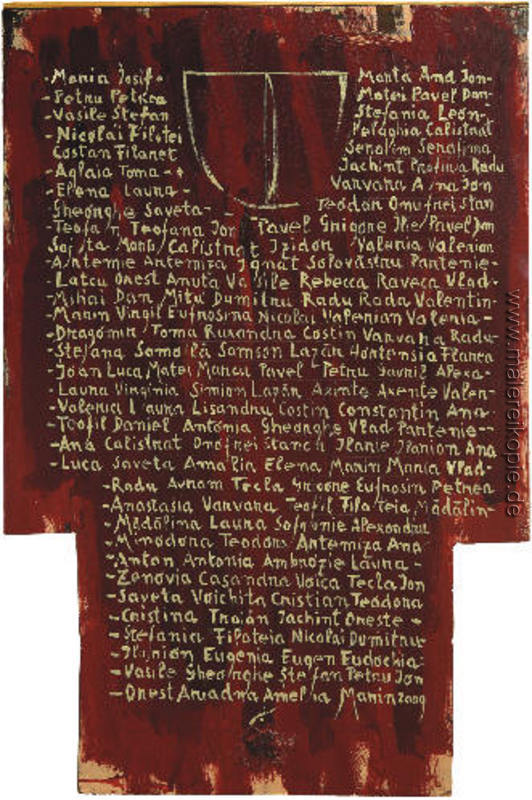 -Maria Iosif- Marta Ana Ion-
-Petru Petrea Matei Pavel Dan-
-Vasile Stefan Stefania Leon-
-Nicolai Filotei Pelaghia Calistrat
Costan Filaret Serafim Serafima
-Aglaia Toma- Iachint Profiria Radu
-Elena Laura- Varvara Ana Ion
Gheorghe Saveta- Teodor Onufrei Stan
-Teofan Teofana Ion Pavel Grigore Ilie Pavel Ion
Sofita Marta Calistrat Izidor Valeria Valerian
-Artemie Artemiza Ignat Solovastru Pantelie-
-Latcu Onest Anuta Vasile Rebecca Raveca Vlad-
-Mihai Dan Mitu Dumitru Radu Rada Valentin-
-Marin Virgil Eufrosina Nicolai Valerian Valeria-
-Dragomir Toma Ruxandra Costin Varvara Radu-
-Stefana Samson Lazar Hortensia Florica
-Ioan Luca Matei Marcu Pavel Petru Gavril Alexa-
-Laura Virginia Simion Lazar Axente Valer-
-Valerica Laura Lisandru Costin Constantin Ana-
-Teofil Daniel Antonia Gheorghe Vlad Pantelie-
-Ana Calistrat Onofrei Stancu Ilarie Ilarion Ana
-Luca Saveta Amalia Elena Marin Maria Vlad-
-Radu Avram Tecla Grigore Eufrosin Petrea
-Anastasia Varvara Teofil Filoteia Madalin-
-Madalina Laura Sofronie Alexandru
-Minodora Teodora Artemiza Ana
-Anton Antonia Ambrozie Laura-
-Zenovia Casandra Voica Tecla Ion
-Saveta Voichita Cristian Teodora
-Cristina Traian Iachint Oreste-
-Stefania Filoteia Nicolai Dumitru
-Ilarion Eugenia Eugen Eudochia-
-Vasile Gheorghe Stefan Petru Ion
-Onest Ariadna Amelia Marin 2009
www.malereikopie.de